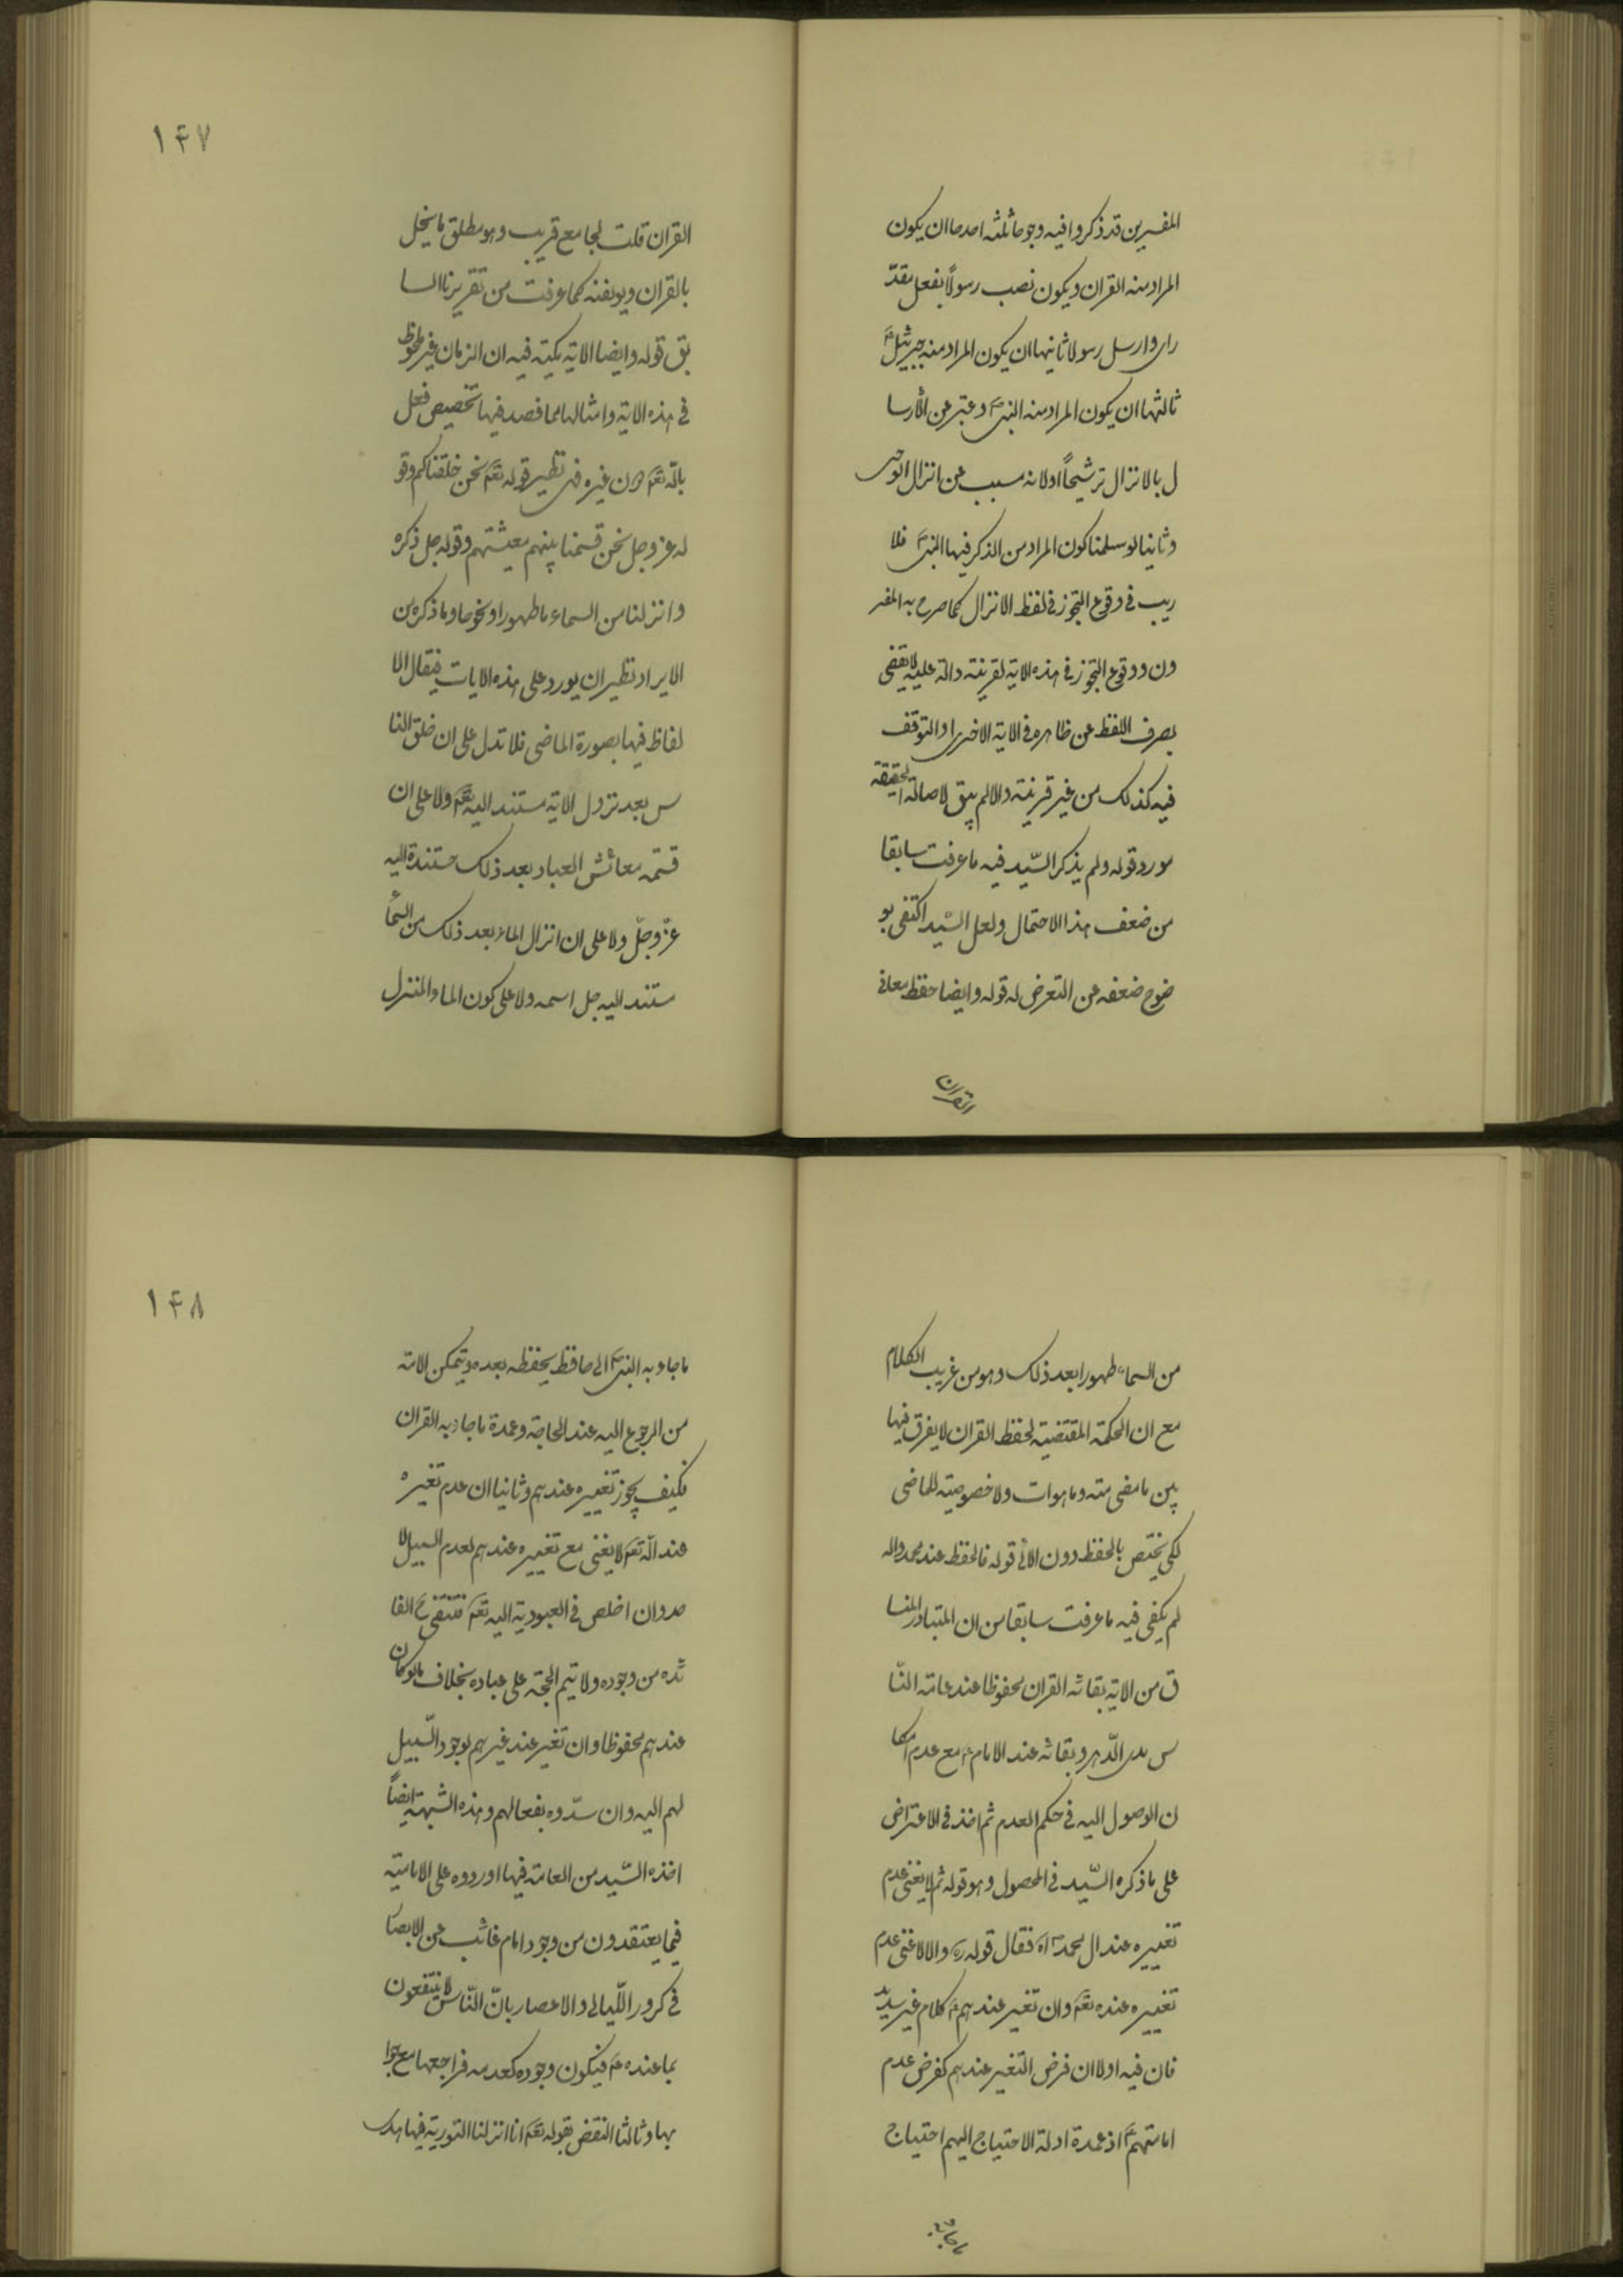 المفسرين قد ذكروا فيه وجوها ثلثه احدها ان يكون
المراد منه القران ويكون نصب رسولاً بفعل مقدّ
راى وارسل رسولا ثانيها ان يكون المراد منه جبرئيلؑ
ثالثها ان يكون المراد منه النبىؐ وعبّر عن الأرسا
ل بالانزال ترشيحاً اولانه مسبب عن انزال الوحى
وثانيا لو سلمنا كون المراد من الذكر فيها النبىؐ فلا
ريب فى وقوع التجوز فى لفظ الانزال كما صرح به المفسر
ون ووقوع التجوز فى هذه الاية لقرينته دالة عليه لايقضى
بصرف اللفظ عن ظاهره فى الاية الاخرى اوالتوقف
فيه كذلك من غير قرينته والالم يبق لاصالة الحقيقة
مورد قوله ولم يذكر السّيد فيه ما عرفت سابقا
من ضعف هذا الاحتمال ولعل السّيد اكتفى بو
ضوح ضعفه عن التعرض له قوله وايضا حفظ معانى
القران
١۴٧
القران قلت لجامع قريب وهو مطلق ما يخل
بالقران ويوهنه كما عرفت من تقريرنا السا
بق قوله وايضا الاية مكية فيه ان الزمان غير ملحوظ
فى هذه الاية وامثالها مما قصد فيها تخصيص فعل
بالله تعؐ دون غيره فهى نظير قوله تعؐ نحن خلقناكم وقو
له عز وجل نحن قسمنا بينهم معيشتهم وقوله جل ذكره
وانزلنا من السماء ماطهورا ونحوها وما ذكره من
الايراد نظير ان يورد على هذه الايات فيقال الا
لفاظ فيها بصورة الماضى فلاتدل على ان خلق النا
س بعد نزول الاية مستند اليه تعؐ ولاعلى ان
قسمته معائش العباد بعد ذلك مستندة اليه
عزّ وجلّ ولا على ان انزال الماء بعد ذلك من السّماء
مستند اليه جل اسمه ولا على كون الماء المنزل
من السماء طهورا بعد ذلك وهو من غريب الكلام
مع ان الحكمة المقتضية لحفظ القران لايفرق فيها
بين ما مضى منه وما هوات ولا خصوصيته للماضى
لكى يختص بالحفظ دون الاٰتى قوله فالحفظ عند محمد واله
لم يكفى فيه ما عرفت سابقا من ان المتبادر المنسا
ق من الاية بقائه القران محفوظا عند عامة النّا
س مدى الدّهر وبقائه عند الامامؑ مع عدم امكا
ن الوصول اليه فى حكم العدم ثم اخذ فى الاعتراض
على ما ذكره السّيد فى المحصول وهو قوله ثم لا يغنى عدم
تغييره عند ال محمدؐ اه فقال قوله ره والا لاغنى عدم
تغييره عنده تعؐ وان تغير عندهمؑ كلام غير سديد
فان فيه اولا ان فرض التغير عندهم كفرض عدم
امامتهمؑ اذ عمدة ادلة الاحتياج اليهم احتياج
ما جاء به
١۴٨
ما جاء به النبىؐ الى حافظ يحفظه بعده ويتمكن الامة
من الرجوع اليه عند الحاجة وعمدة ما جاء به القران
فكيف يجوز تغييره عندهم وثانيا ان عدم تغيره
عند الله تعؐ لايغنى مع تغييره عندهم لعدم السبيل لا
حد وان اخلص فى العبودية اليه تعؐ فتنتفى ح الفا
ئده من وجوده ولا تتم الحجة على عباده بخلاف مالو كان
عندهم محفوظا وان تغير عند غيرهم لوجود السّبيل
لهم اليه وان سدّوه بفعالهم وهذه الشبهة ايضاً
اخذه السّيد من العامة فيها اوردوه على الامامية
فيما يعتقدون من وجود امام غائب عن الابصا
فى كرور اللّيالى والاعصار بانّ النّاس لاينتفعون
بما عنده عؑ فيكون وجوده كعدمه فراجعها مع جوا
بها وثالثا النقض بقوله تعؐ انا انزلنا التورية فيها هدى